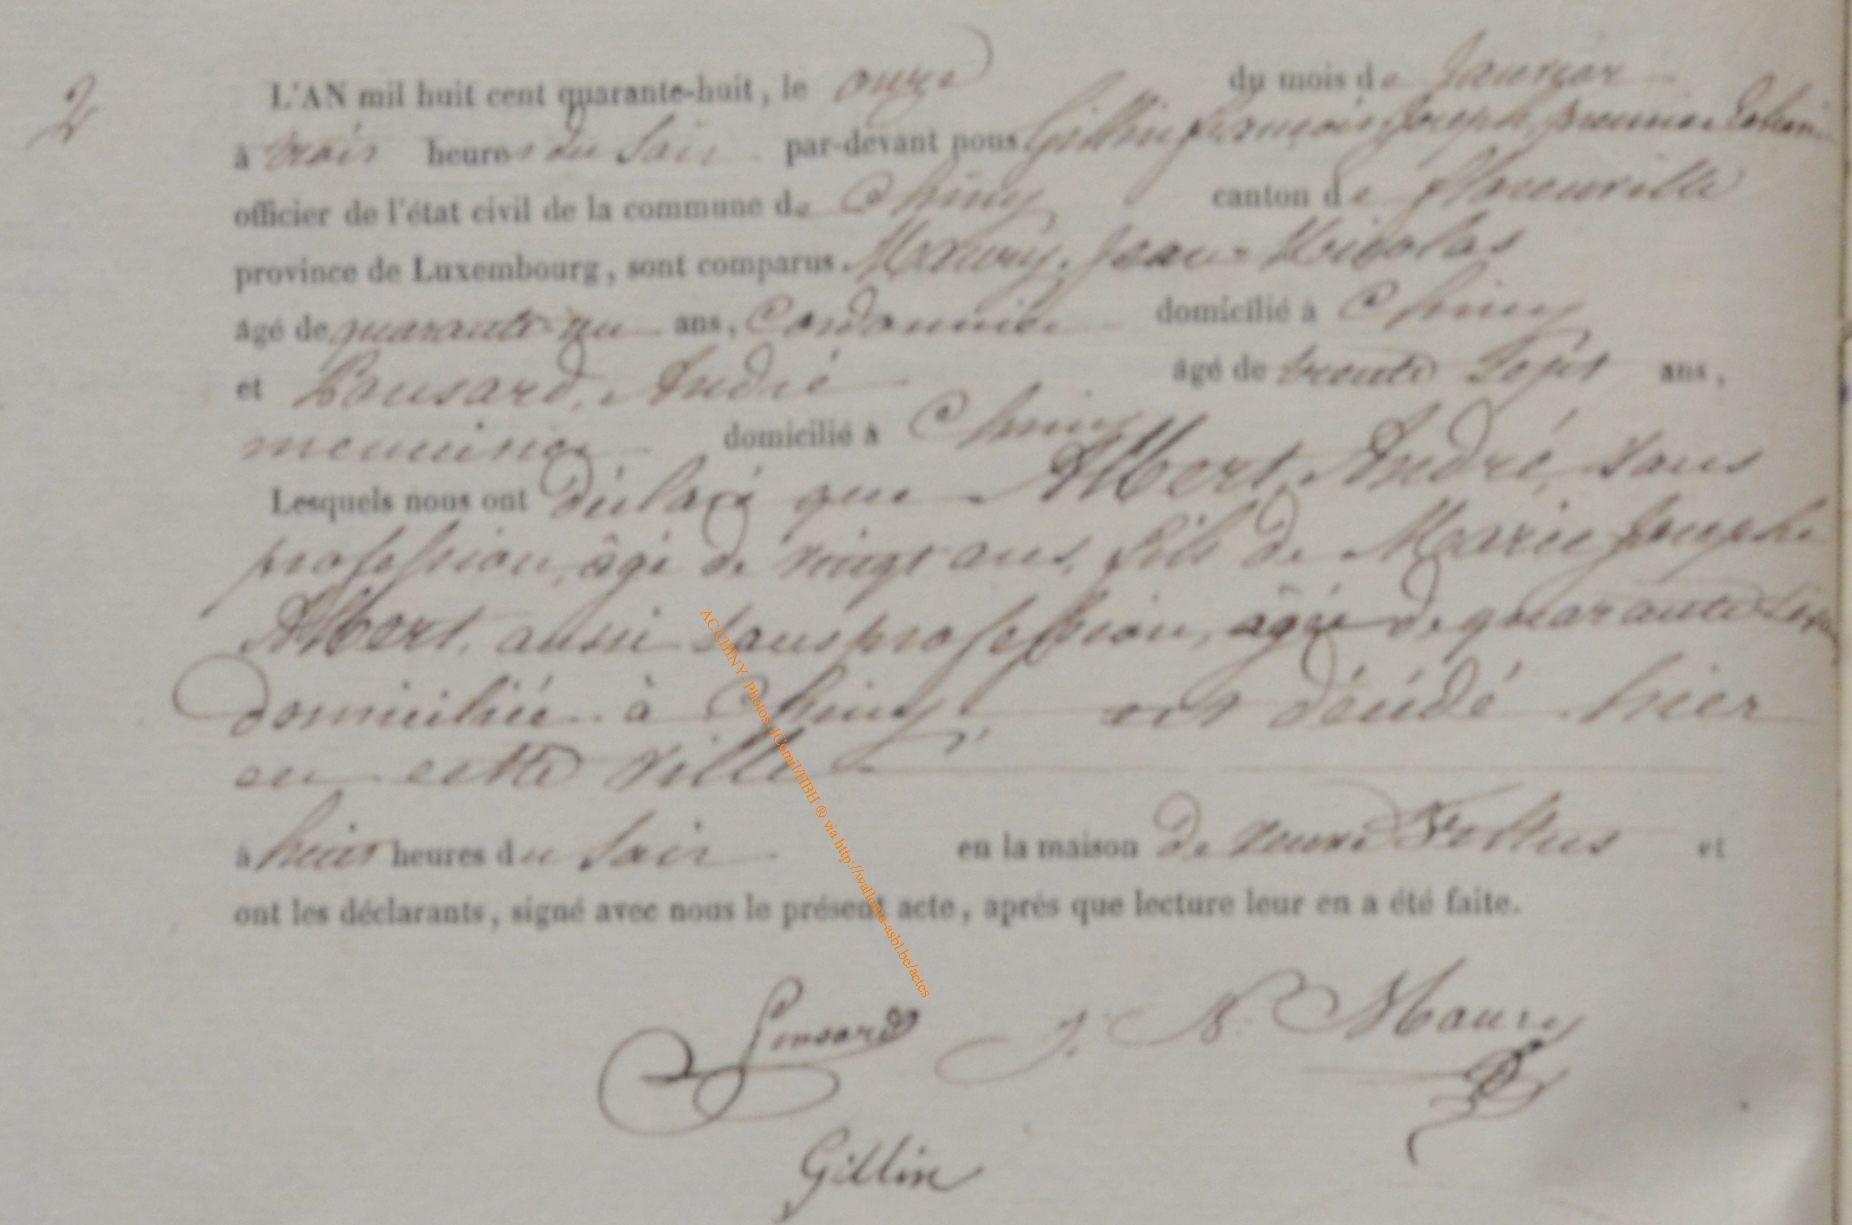 2
L'AN mil huit cent quarante-huit, le onze du mois de Janvier
à trois heures du Soir par-devant nous Gillin françois Joseph, premier Echevin
officier de l'état civil de la commune de Chiny canton de florenville
province de Luxembourg, sont comparus Maury, Jean-Nicolas
âgé de quarante un ans, Cordonnier domicilié à Chiny
et Ponsard, André âgé de trente Sept ans,
menuisier domicilié à Chiny
Lesquels nous ont déclaré que Albert, André, sans
profession, âgé de vingt ans, fils de Marie Josephe
Albert, aussi sans profession, âgée de quarante
domiciliée à Chiny, est décédé hier
en cette ville
à huit heures du Soir en la maison de veuve et
ont les déclarants, signé avec nous le présent acte, après que lecture leur en a été faite.
Ponsard J. N. Maury
Gillin
AC CHINY- Photos JCemil/HBH ® via http://wallonia-asbl.be/actes